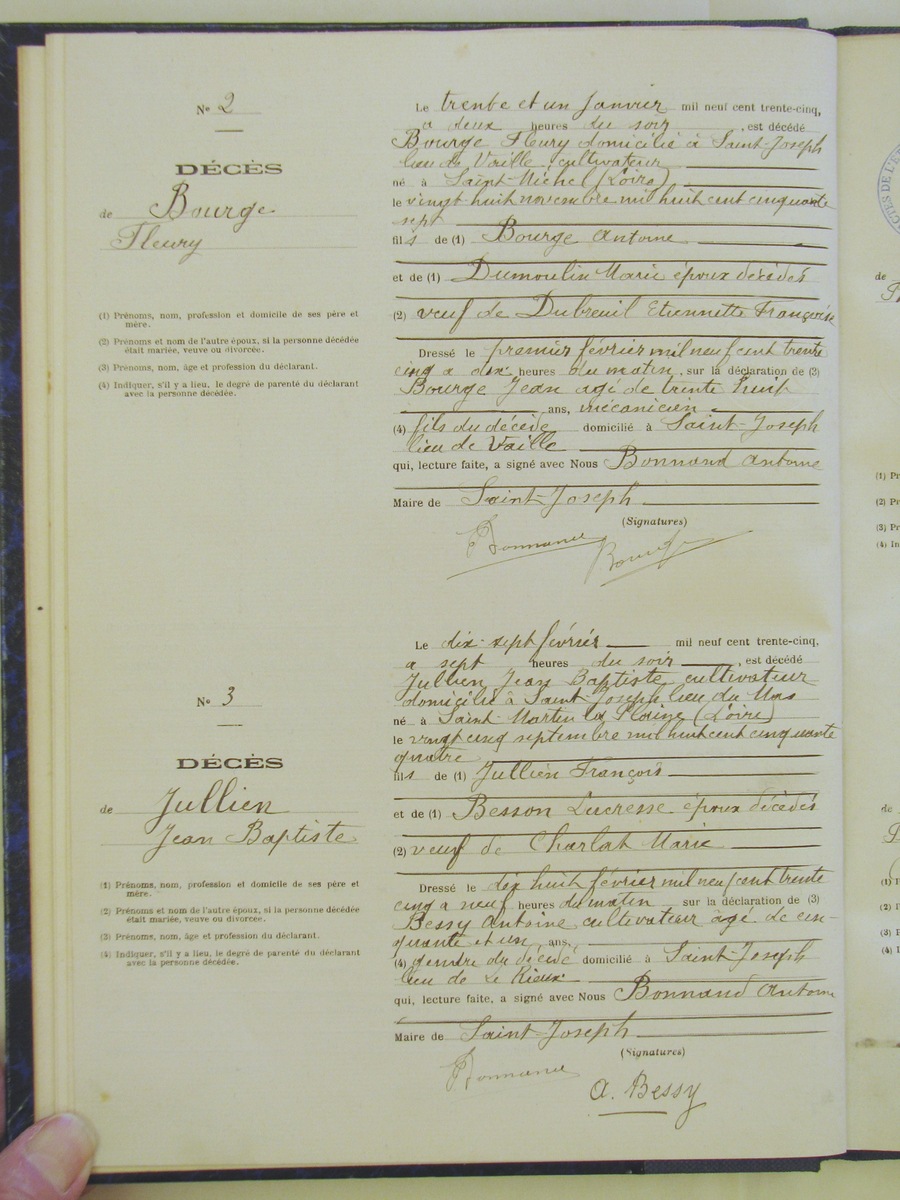 N° 2
DÉCÈS
de Bourge
Fleury
(1) Prénoms, nom, profession et domicile de ses père et
mère.
(2) Prénoms et nom de l'autre époux, si la personne décédée
était mariée, veuve ou divorcée.
(3) Prénoms, nom, âge et profession du déclarant.
(4) Indiquer, s'il y a lieu, le degré de parenté du déclarant
avec la personne décédée.
Le trente et un Janvier mil neuf cent trente-cinq,
a deux heures du soir, est décédé
Bourge Fleury domicilié à Saint-Joseph
lieu de Vaille, cultivateur
né à Saint-Michel (Loire)
le vingt huit novembre mil huit cent cinquante
sept
fils de (1) Bourge Antoine
et de (1) Dumoulin Marie époux décédés
(2) veuf de Dubreuil Etiennette Françoise
Dressé le premier février mil neuf cent trente
cinq a dix heures du matin, sur la déclaration de (3)
Bourge Jean agé de trente huit
ans, mécanicien
(4) fils du décédé domicilié à Saint-Joseph
lieu de Vaille
qui, lecture faite, a signé avec Nous Bonnand Antoine
Maire de Saint-Joseph
(Signatures)
Bonnand
Bourge
N° 3
DÉCÈS
de Jullien
Jean Baptiste
(1) Prénoms, nom, profession et domicile de ses père et
mère.
(2) Prénoms et nom de l'autre époux, si la personne décédée
était mariée, veuve ou divorcée.
(3) Prénoms, nom, âge et profession du déclarant.
(4) Indiquer, s'il y a lieu, le degré de parenté du déclarant
avec la personne décédée.
Le dix-sept février mil neuf cent trente-cinq,
a sept heures du soir, est décédé
Jullien Jean Baptiste cultivateur
domicilié à Saint Joseph lieu du Mas
né à Saint Martin la Plaine (Loire)
le vingt cinq septembre mil huit cent cinquante
quatre
fils de (1) Jullien François
et de (1) Besson Lucresse époux décédés
(2) veuf de Charlat Marie
Dressé le dix huit février mil neuf cent trente
cinq a neuf heures du matin sur la déclaration de (3)
Bessy Antoine cultivateur âgé de cin-
quante et un ans,
(4) gendre du décédé domicilié à Saint-Joseph
lieu de Le Rieux
qui, lecture faite, a signé avec Nous Bonnand Antoine
Maire de Saint Joseph
(Signatures)
Bonnand
A. Bessy